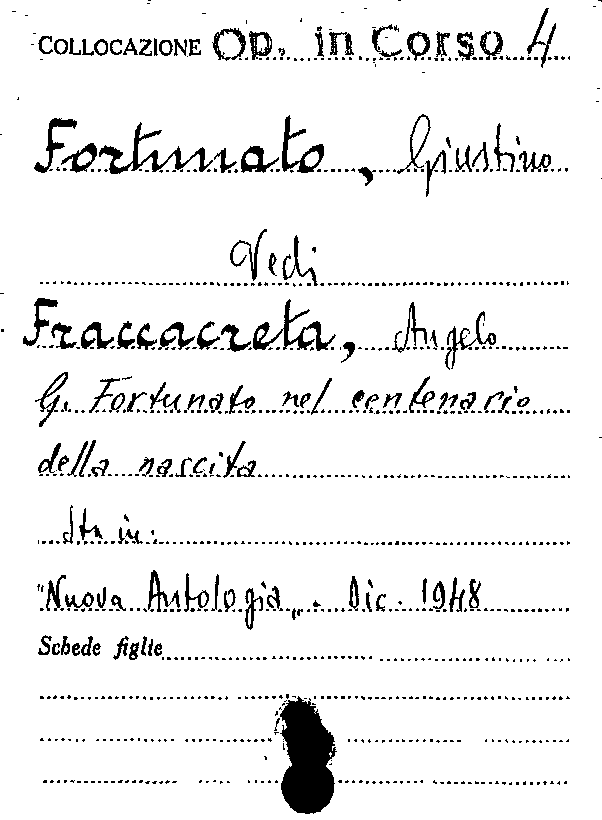 COLLOCAZIONE Op. in Corso 4
Fortunato, Giustino
Vedi
Fraccacreta, Angelo
G. Fortunato nel centenario
della nascita
Sta in:
"Nuova Antologia„. Dic. 1948
Schede figlie